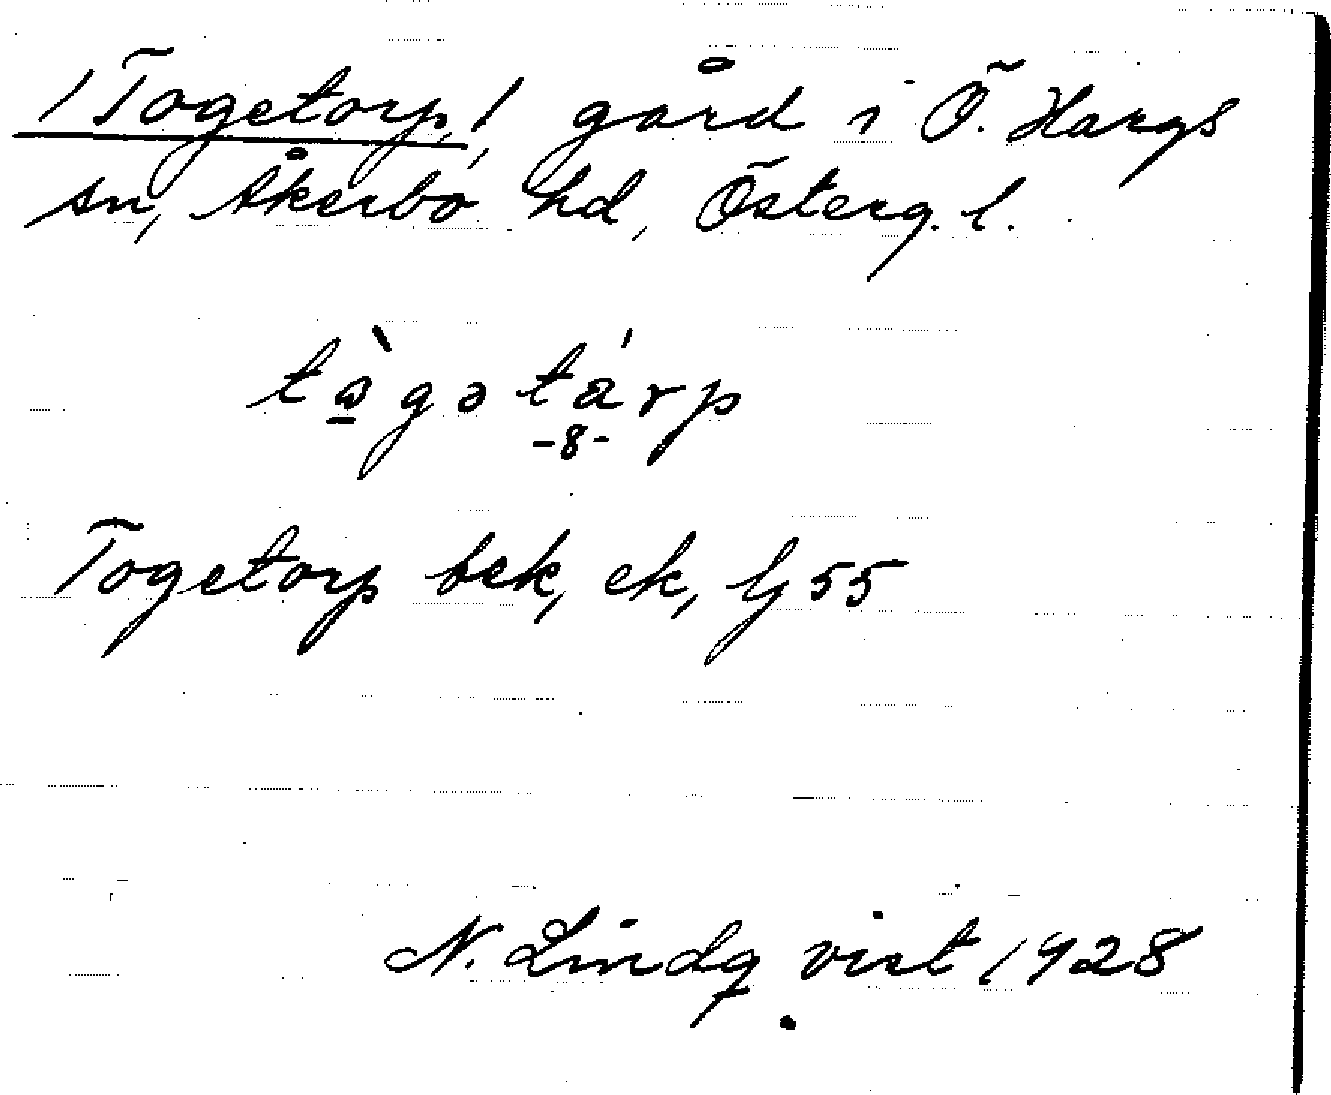 /Togetorp,/ gård i Ö. Hargs
sn, Åkerbo hd, Österg. l.
tàgətárp
-8-
Togetorp bek, ek, lj 55
N. Lindqvist 1928